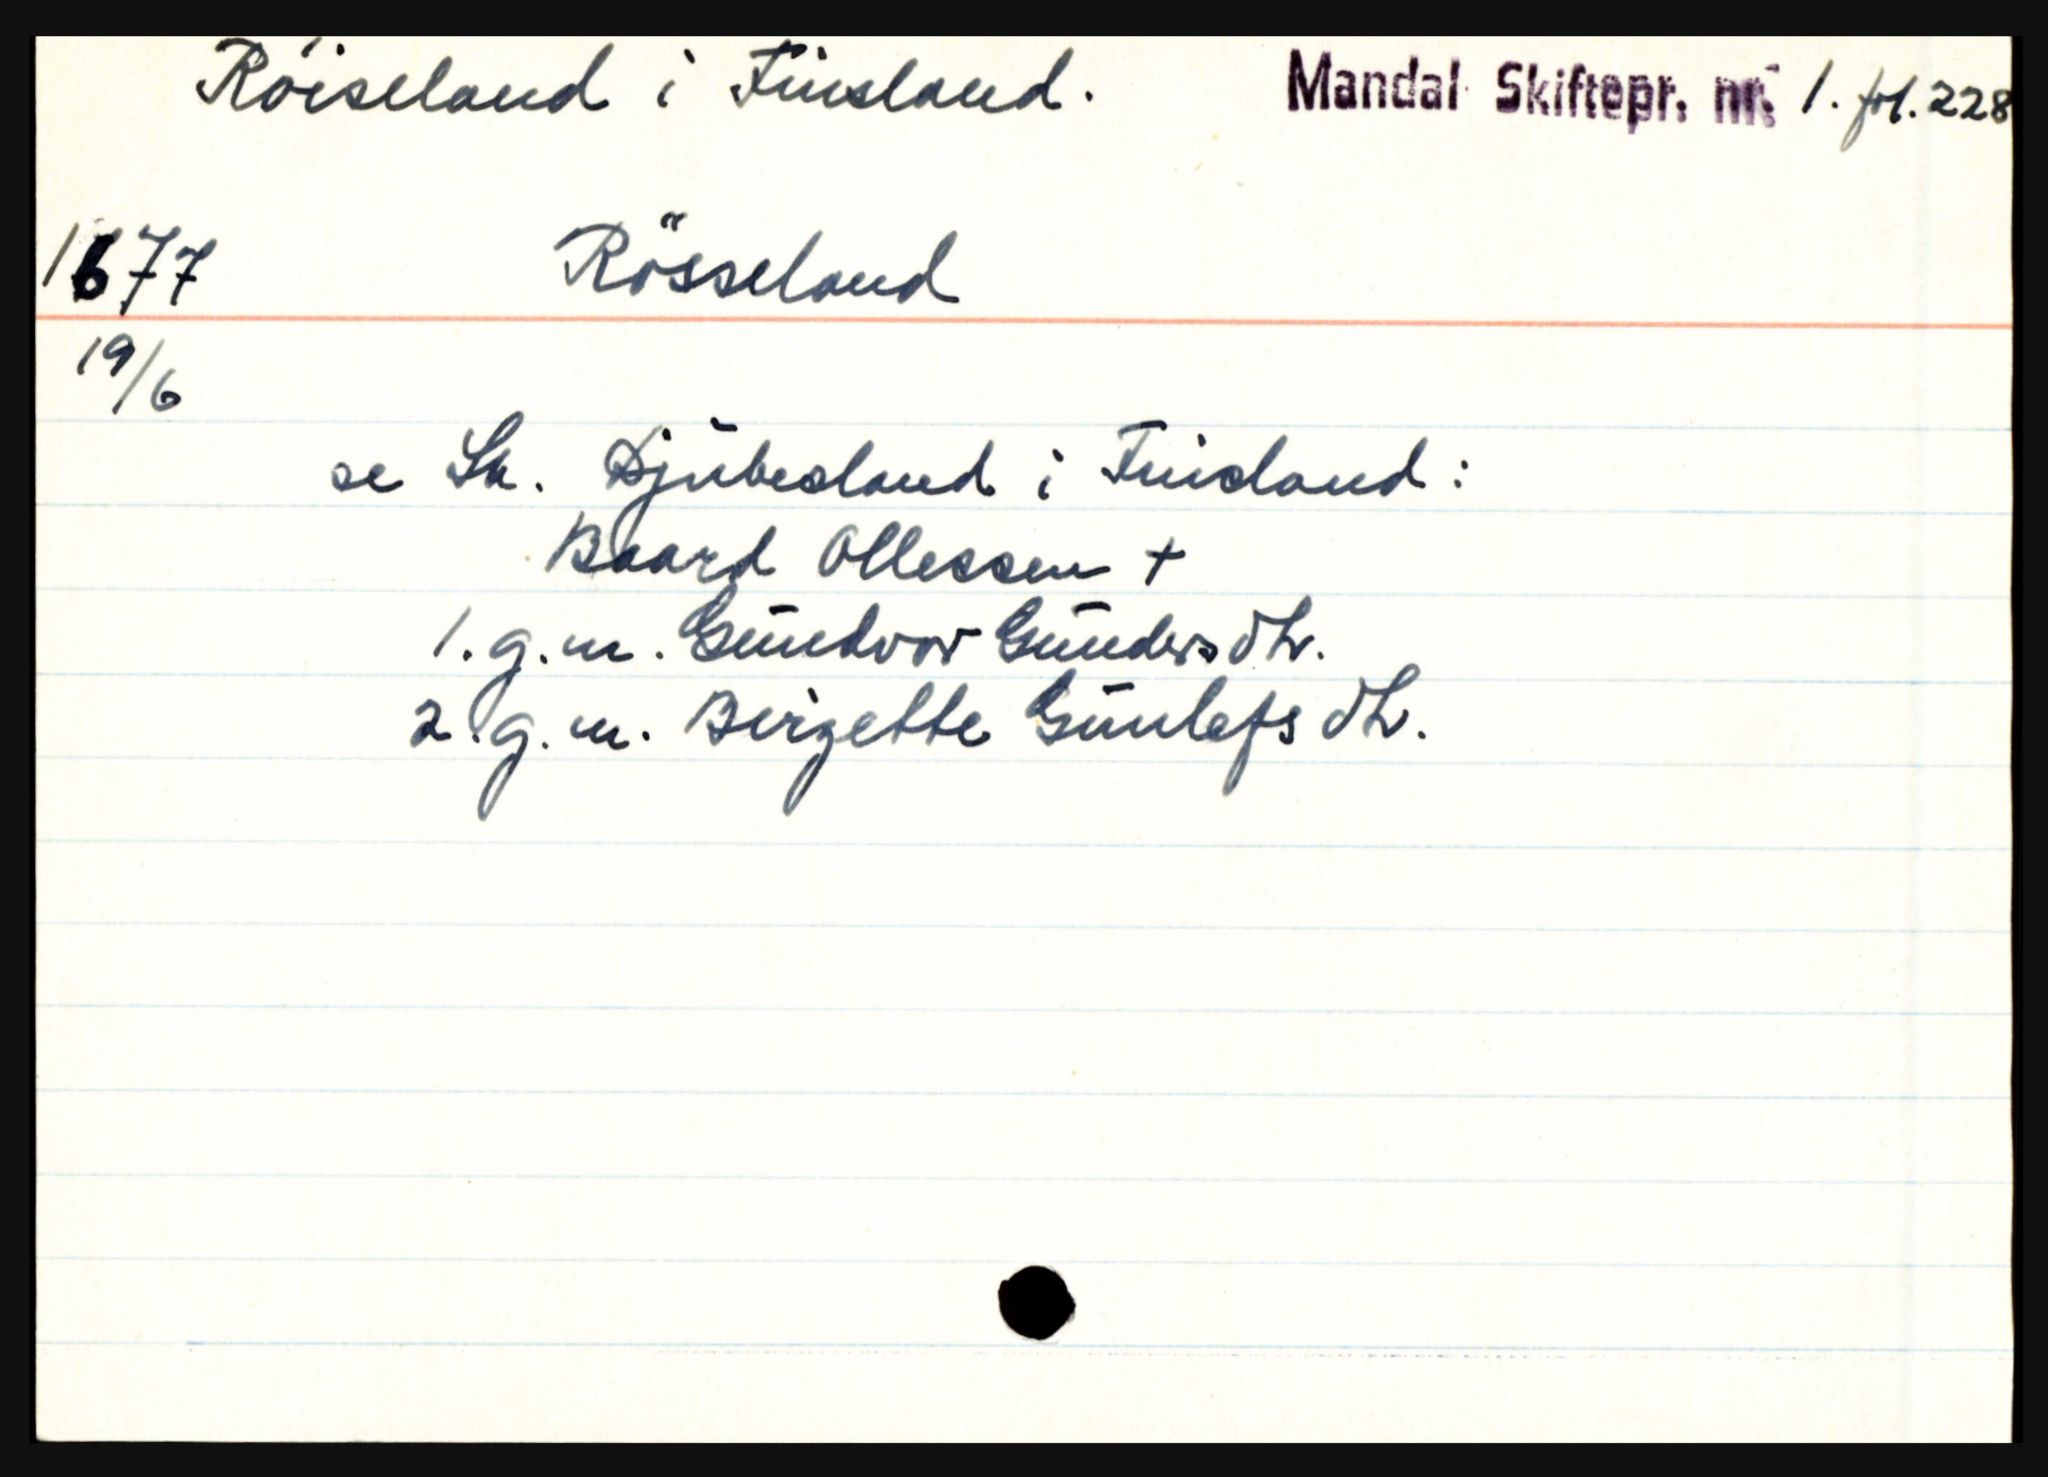 Röiseland i Finsland. Mandal Skiftepr. nr. 1. fol. 228
1677 Rösseland
19/6
se Sk. Djubesland i Finsland:
Baard Ollessen +
1. g. m. Gundvor Gundersdtr.
2. g. m. Birgette Gunlefsdtr.